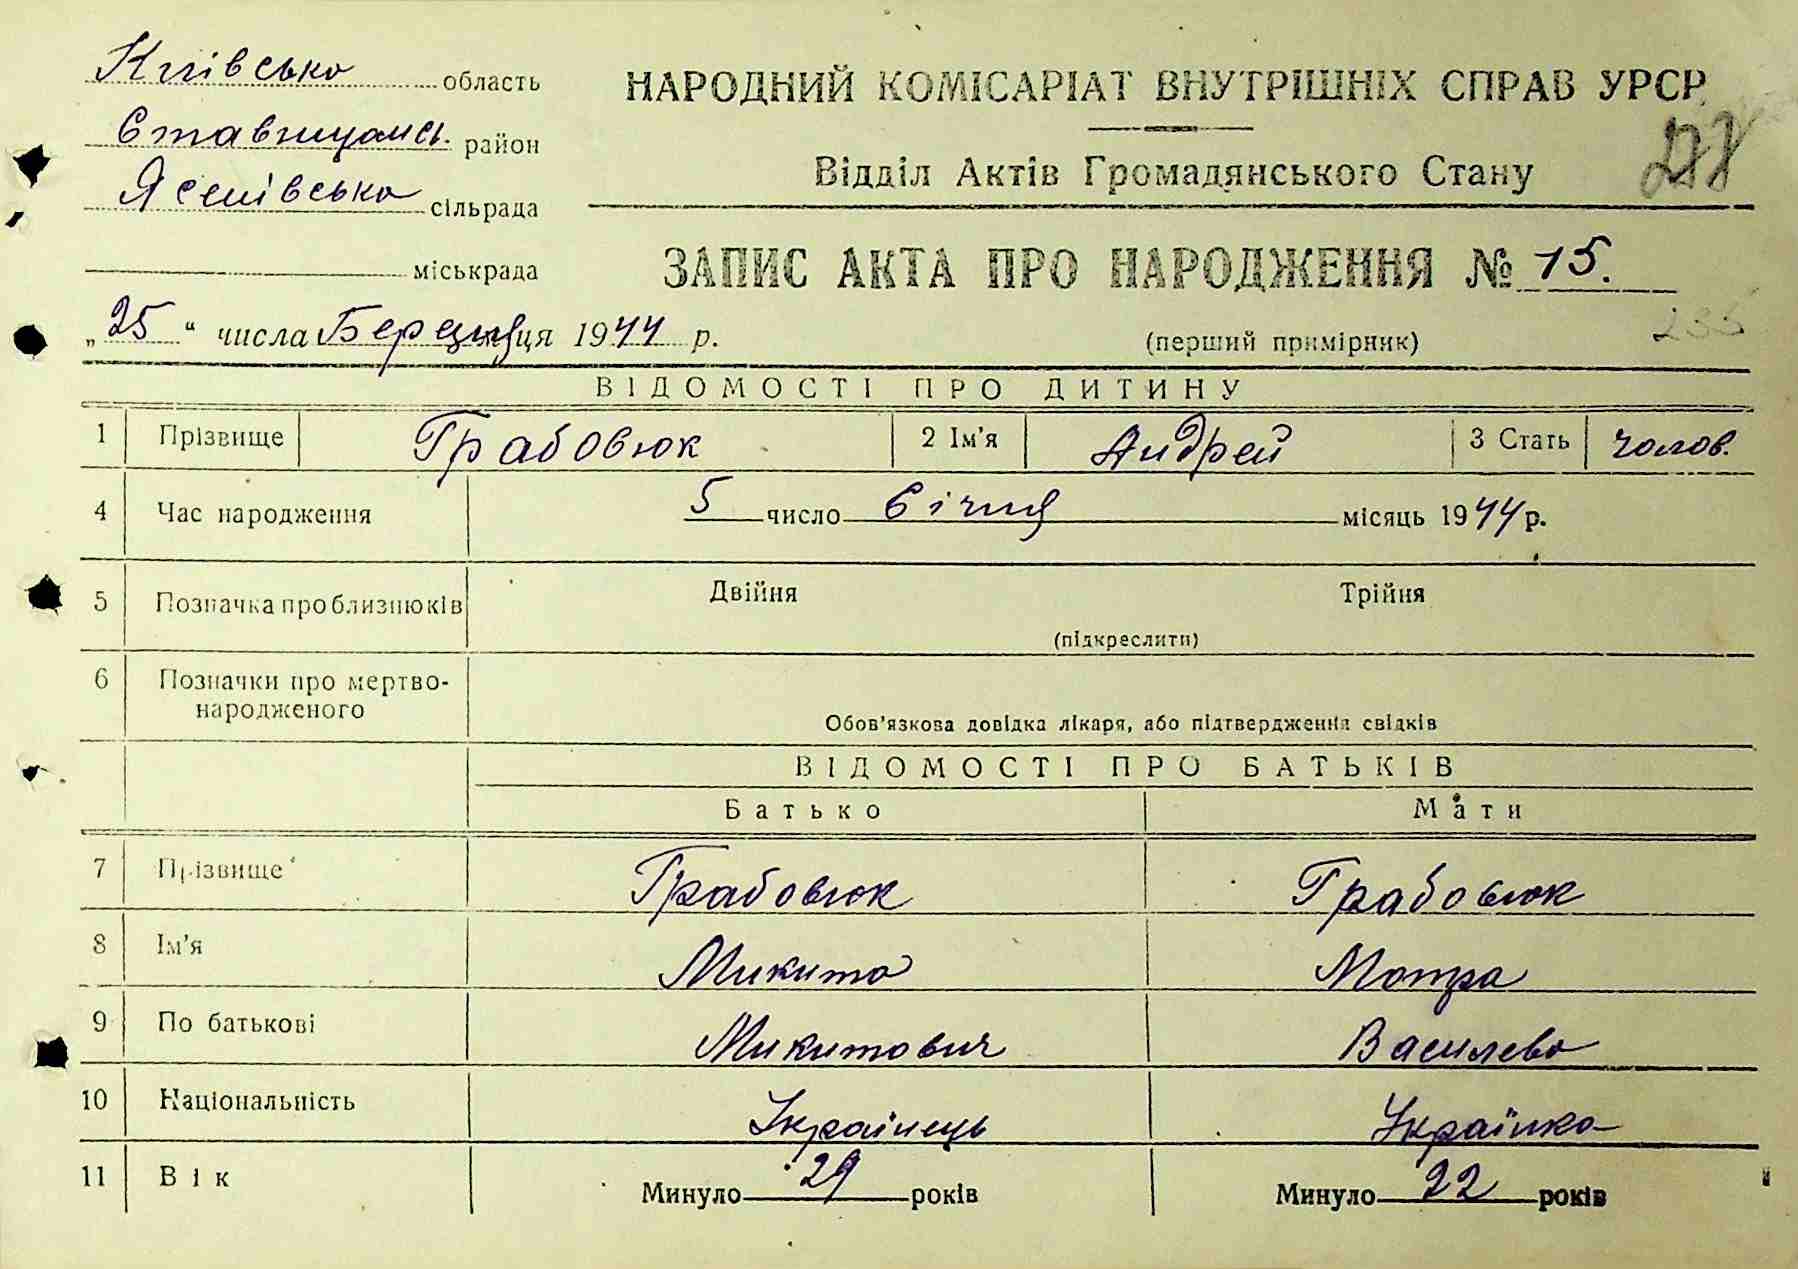 Київська область
Ставищанськ. район
Ясенівська сільрада
міськрада
НАРОДНИЙ КОМІСАРІАТ ВНУТРІШНІХ СПРАВ УРСР
Відділ Актів Громадянського Стану
ЗАПИС АКТА ПРО НАРОДЖЕННЯ № 15.
„25“ числа Березня ця 1944 р.
(перший примірник)
235
ВІДОМОСТІ ПРО ДИТИНУ
1 Прізвище Грабовюк 2 Ім'я Андрей 3 Стать чолов.
4 Час народження 5 число Січня місяць 1944 р.
5 Позначка про близнюків Двійня Трійня
(підкреслити)
6 Позначки про мертво-
народженого
Обов'язкова довідка лікаря, або підтвердження свідків
ВІДОМОСТІ ПРО БАТЬКІВ
Батько Мати
7 Прізвище Грабовюк Грабовюк
8 Ім'я Микита Мотра
9 По батькові Микитович Василева
10 Національність Українець Українка
11 Вік Минуло 29 років Минуло 22 років